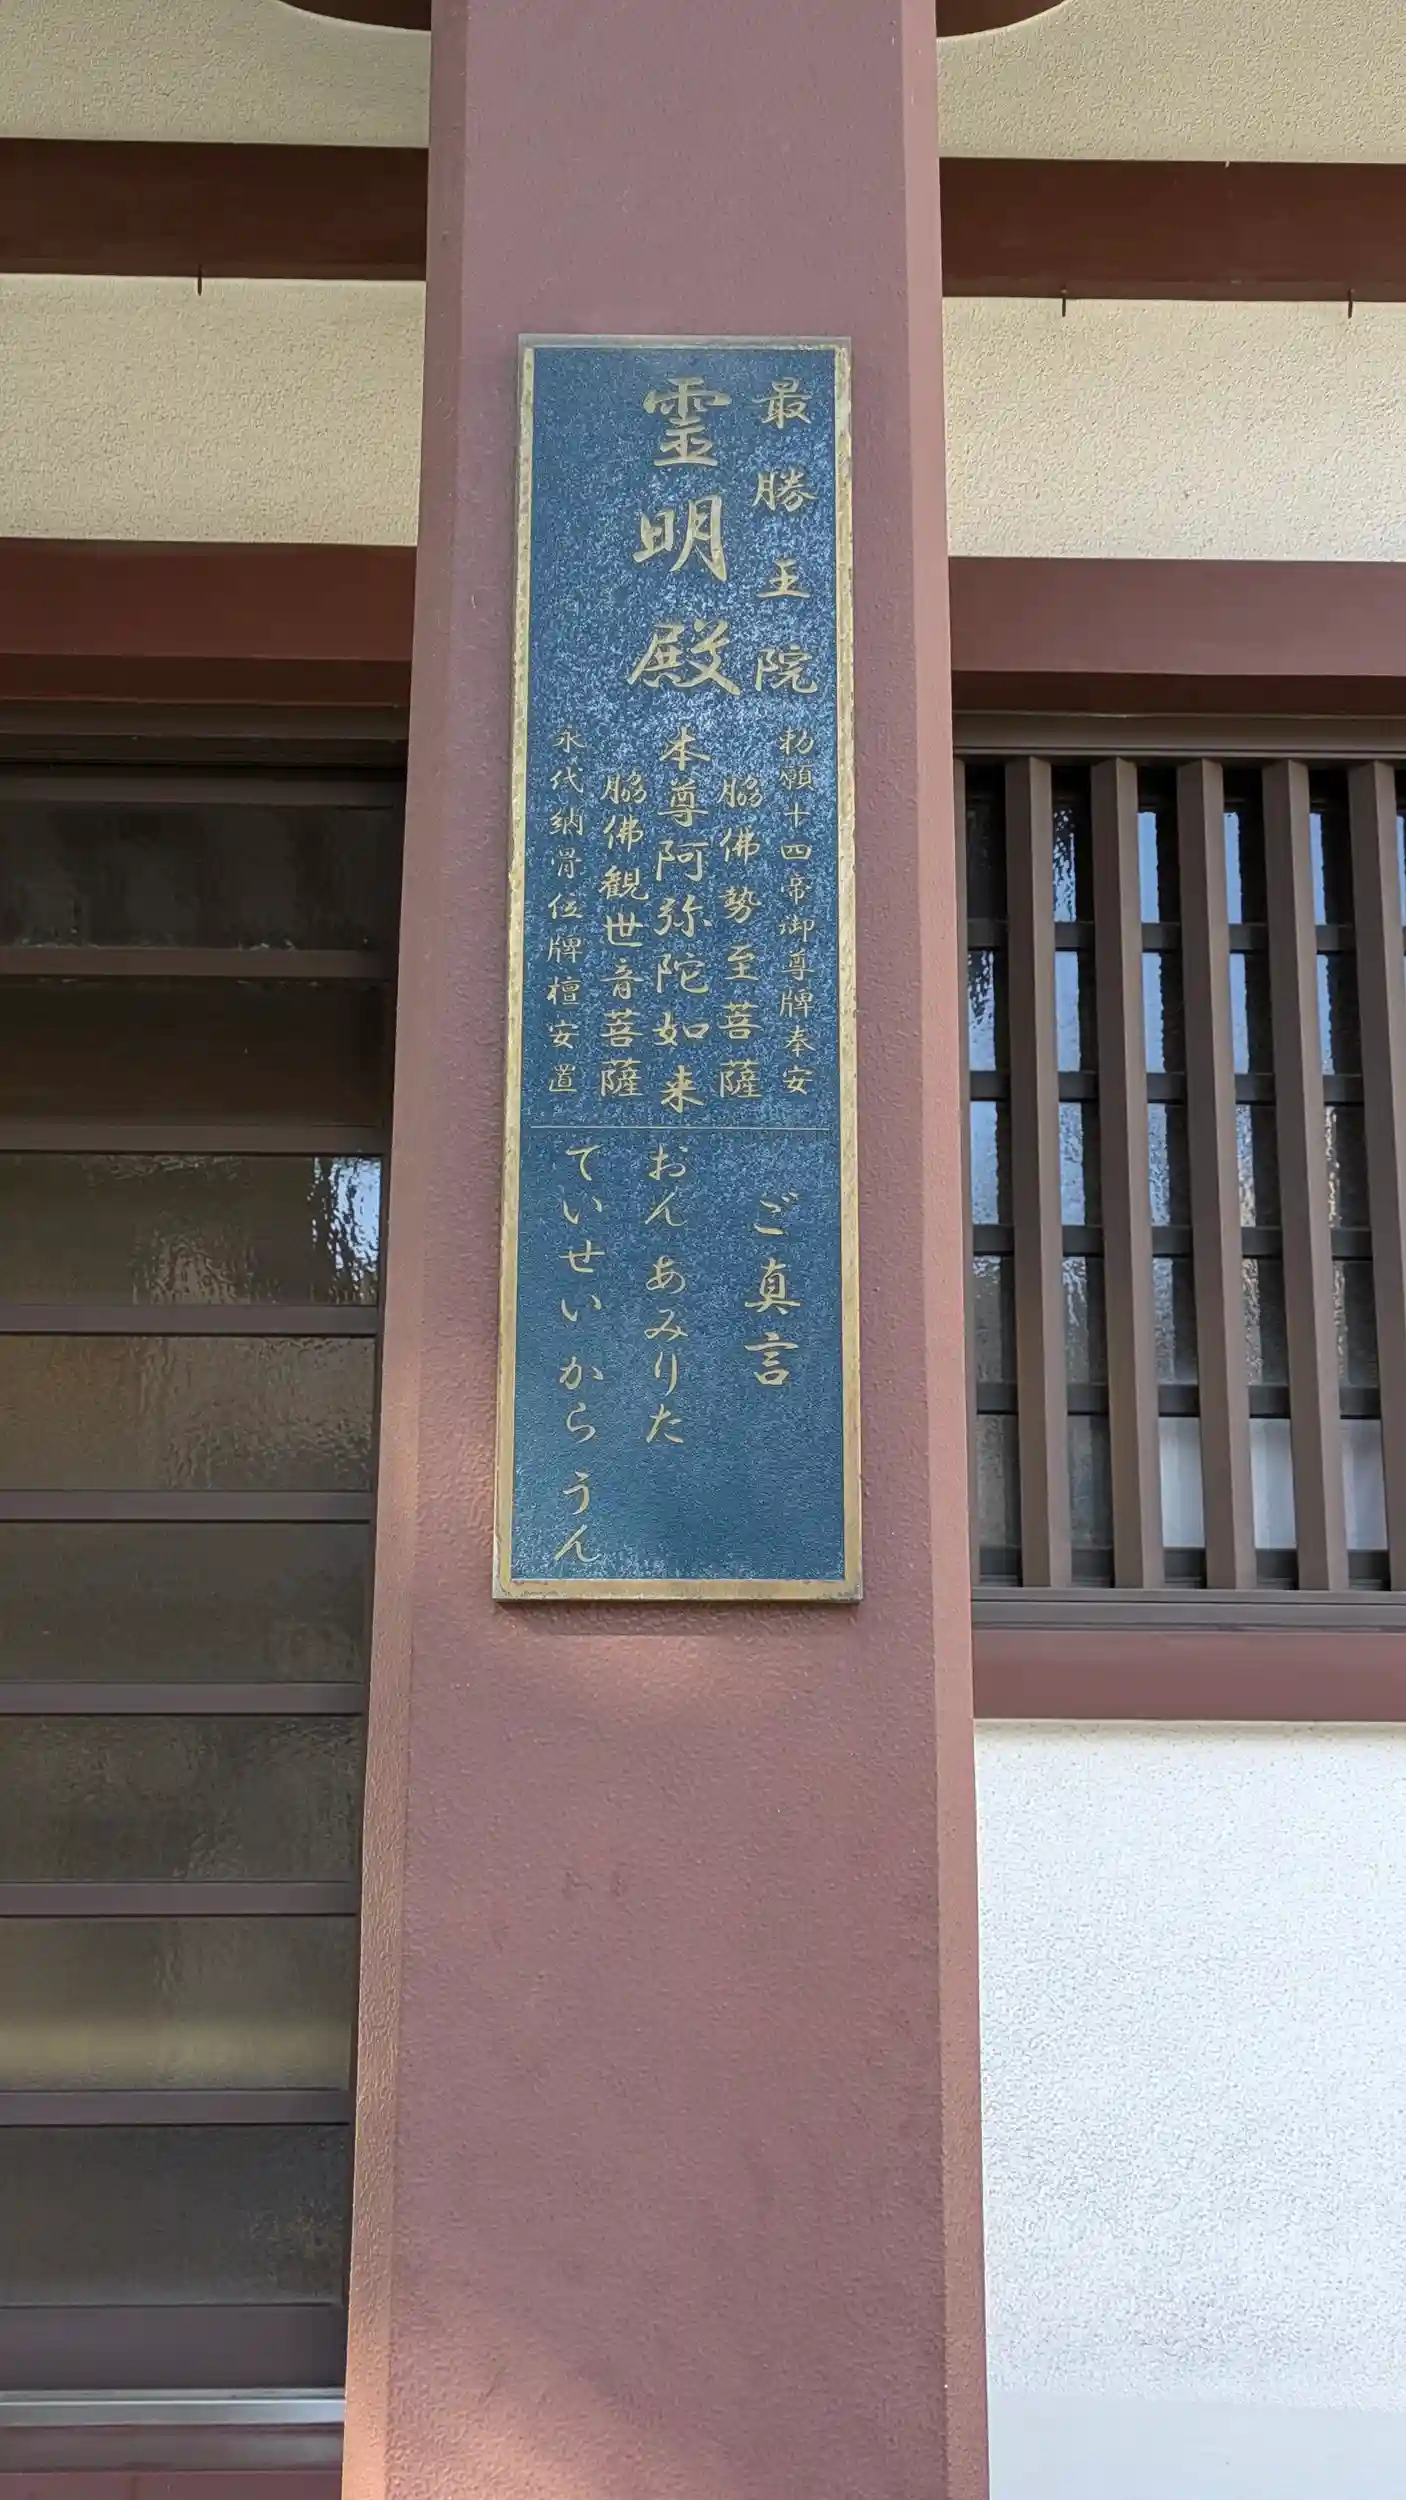 最勝王院
霊明殿
勅願十四帝御尊牌奉安
脇佛勢至菩薩
本尊阿弥陀如来
脇佛観世音菩薩
永代納骨位牌檀安置
ご真言
おん あみりた
ていせいから うん